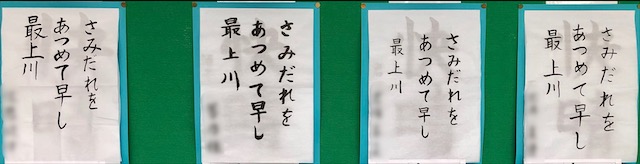 さみだれを
あつめて早し
最上川
さみだれを
あつめて早し
最上川
さみだれを
あつめて早し
最上川
さみだれを
あつめて早し
最上川